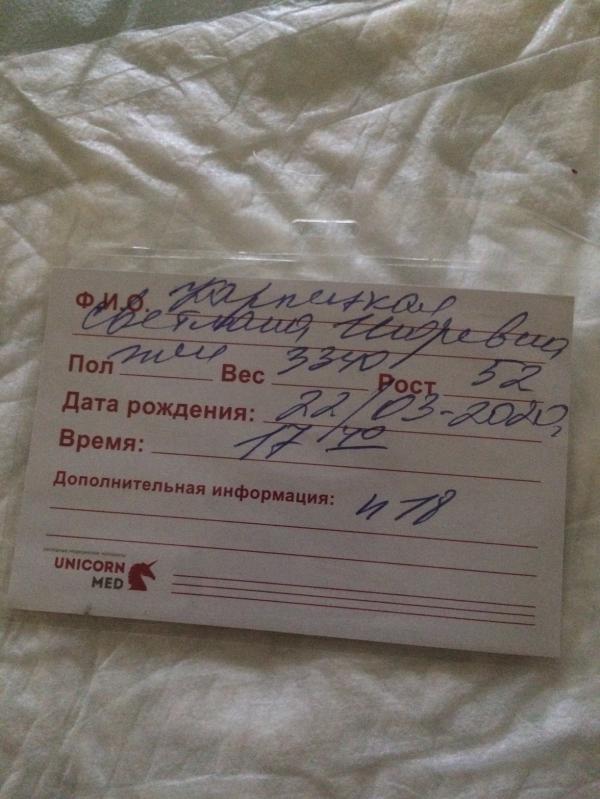 Ф.И.О. Карпицкая
Светлана Игоревна
Пол жен Вес 3340 Рост 52
Дата рождения: 22/03-2020г
Время: 17 40
Дополнительная информация: и 18
UNICORN
MED